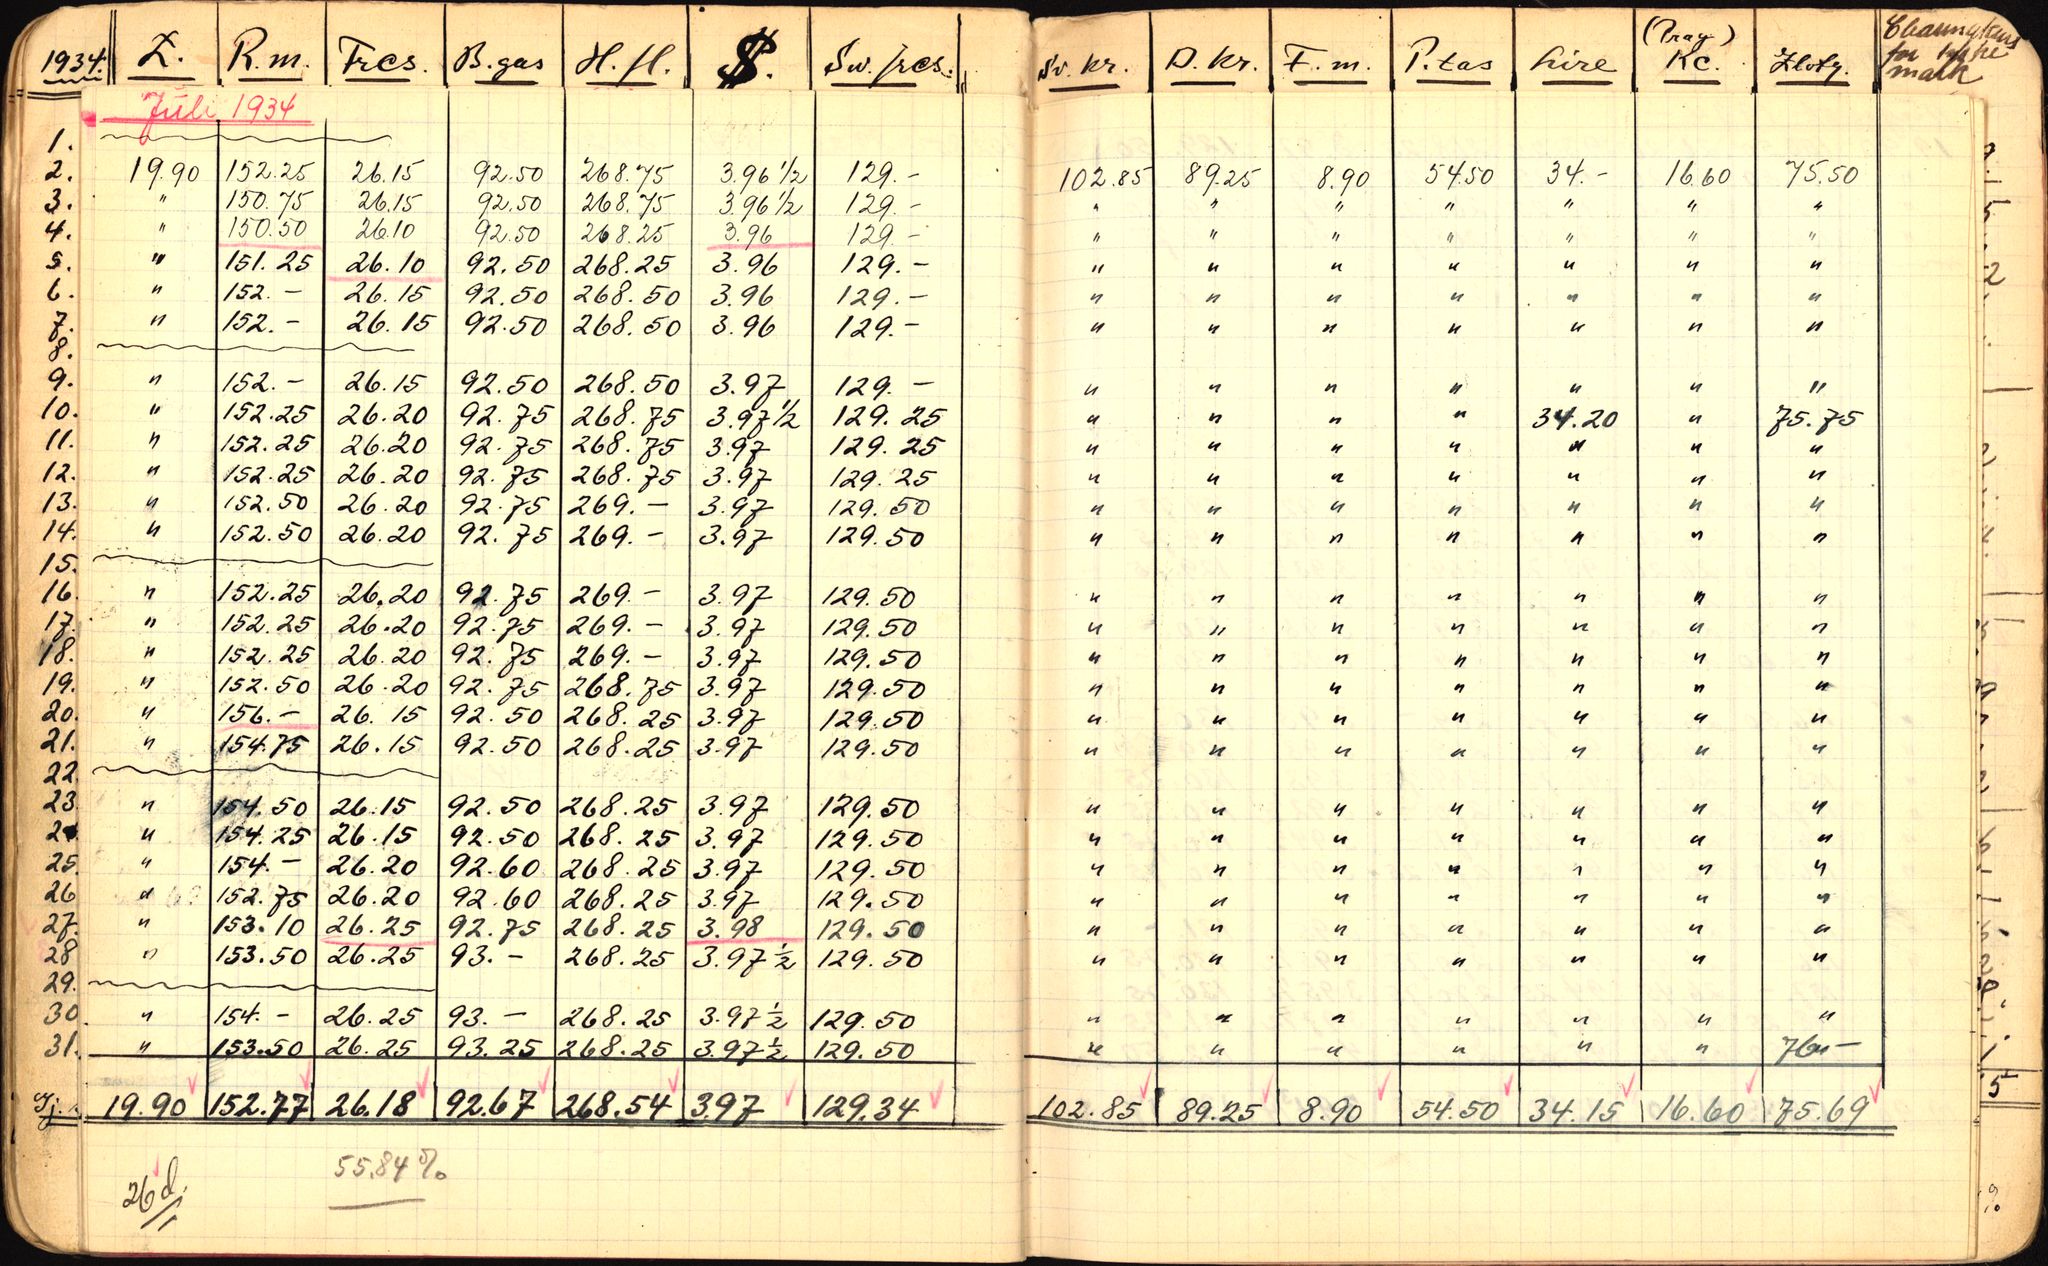 1934. £. R.m. Frcs. B.gas H.fl. $. Sw.frcs. Sv.kr. D.kr. F.m. P.tas Lire (Prag) Kc. Zloty. for mark
Juli 1934
1.
2. 19.90 152.25 26.15 92.50 268.75 3.96½ 129.- 102.85 89.25 8.90 54.50 34.- 16.60 75.50
3. " 150.75 26.15 92.50 268.75 3.96½ 129.- " " " " " " "
4. " 150.50 26.10 92.50 268.25 3.96 129.- " " " " " " "
5. " 151.25 26.10 92.50 268.25 3.96 129.- " " " " " " "
6. " 152.- 26.15 92.50 268.50 3.96 129.- " " " " " " "
7. " 152.- 26.15 92.50 268.50 3.96 129.- " " " " " " "
8.
9. " 152.- 26.15 92.50 268.50 3.97 129.- " " " " " " "
10. " 152.25 26.20 92.75 268.75 3.97½ 129.25 " " " " 34.20 " 75.75
11. " 152.25 26.20 92.75 268.75 3.97 129.25 " " " " " " "
12. " 152.25 26.20 92.75 268.75 3.97 129.25 " " " " " " "
13. " 152.50 26.20 92.75 269.- 3.97 129.50 " " " " " " "
14. " 152.50 26.20 92.75 269.- 3.97 129.50 " " " " " " "
15.
16. " 152.25 26.20 92.75 269.- 3.97 129.50 " " " " " " "
17. " 152.25 26.20 92.75 269.- 3.97 129.50 " " " " " " "
18. " 152.25 26.20 92.75 269.- 3.97 129.50 " " " " " " "
19. " 152.50 26.20 92.75 268.75 3.97 129.50 " " " " " " "
20. " 156.- 26.15 92.50 268.25 3.97 129.50 " " " " " " "
21. " 154.75 26.15 92.50 268.25 3.97 129.50 " " " " " " "
22.
23. " 154.50 26.15 92.50 268.25 3.97 129.50 " " " " " " "
24 " 154.25 26.15 92.50 268.25 3.97 129.50 " " " " " " "
25. " 154.- 26.20 92.60 268.25 3.97 129.50 " " " " " " "
26 " 152.75 26.20 92.60 268.25 3.97 129.50 " " " " " " "
27. " 153.10 26.25 92.75 268.25 3.98 129.50 " " " " " " "
28 " 153.50 26.25 93.- 268.25 3.97½ 129.50 " " " " " " "
29.
30. " 154.- 26.25 93.- 268.25 3.97½ 129.50 " " " " " " "
31. " 153.50 26.25 93.25 268.25 3.97½ 129.50 " " " " " " 76.-
Gj. 19.90 152.77 26.18 92.67 268.54 3.97 129.34 102.85 89.25 8.90 54.50 34.15 16.60 75.69
26 d. 55.84 %